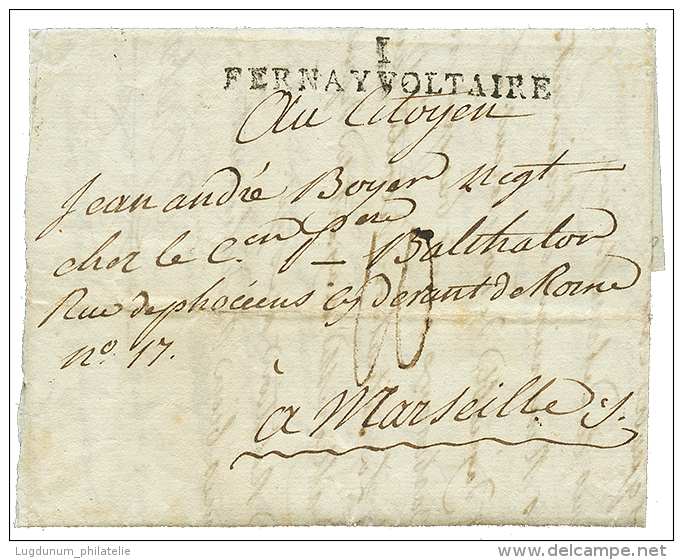 I
FERNAYVOLTAIRE
Au Citoyen
Jean andré Boyer Negt
chez le Cen pere Balthalon
Rue dephocéens cy devant de Rome
no. 17.
10
à Marseille
Lugdunum_philatelie
www.delcampe.net